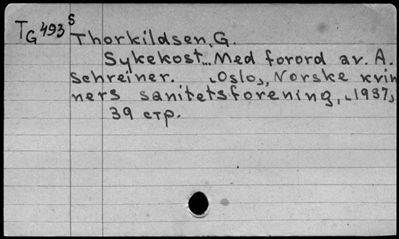 TG 493 s
Thorkildsen, G.
Sykekost... Med forord av. A.
Schreiner. [Oslo], Norske kvin
ners sanitetsforening, [1937]
39 стр.